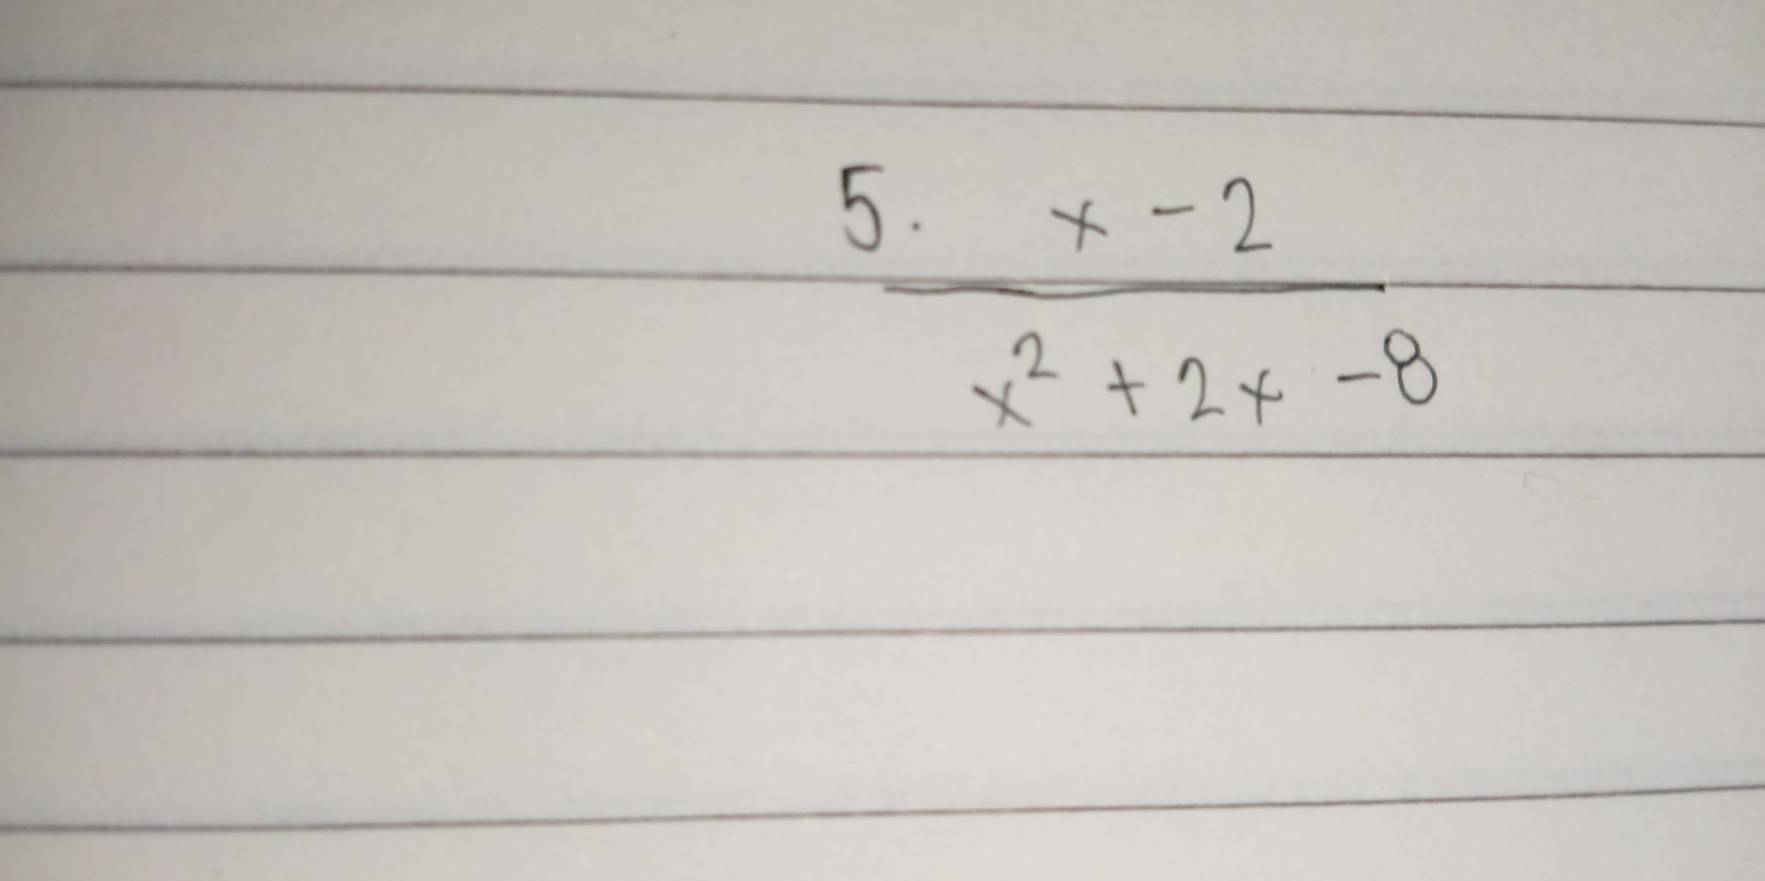 5. x - 2
x² + 2x - 8